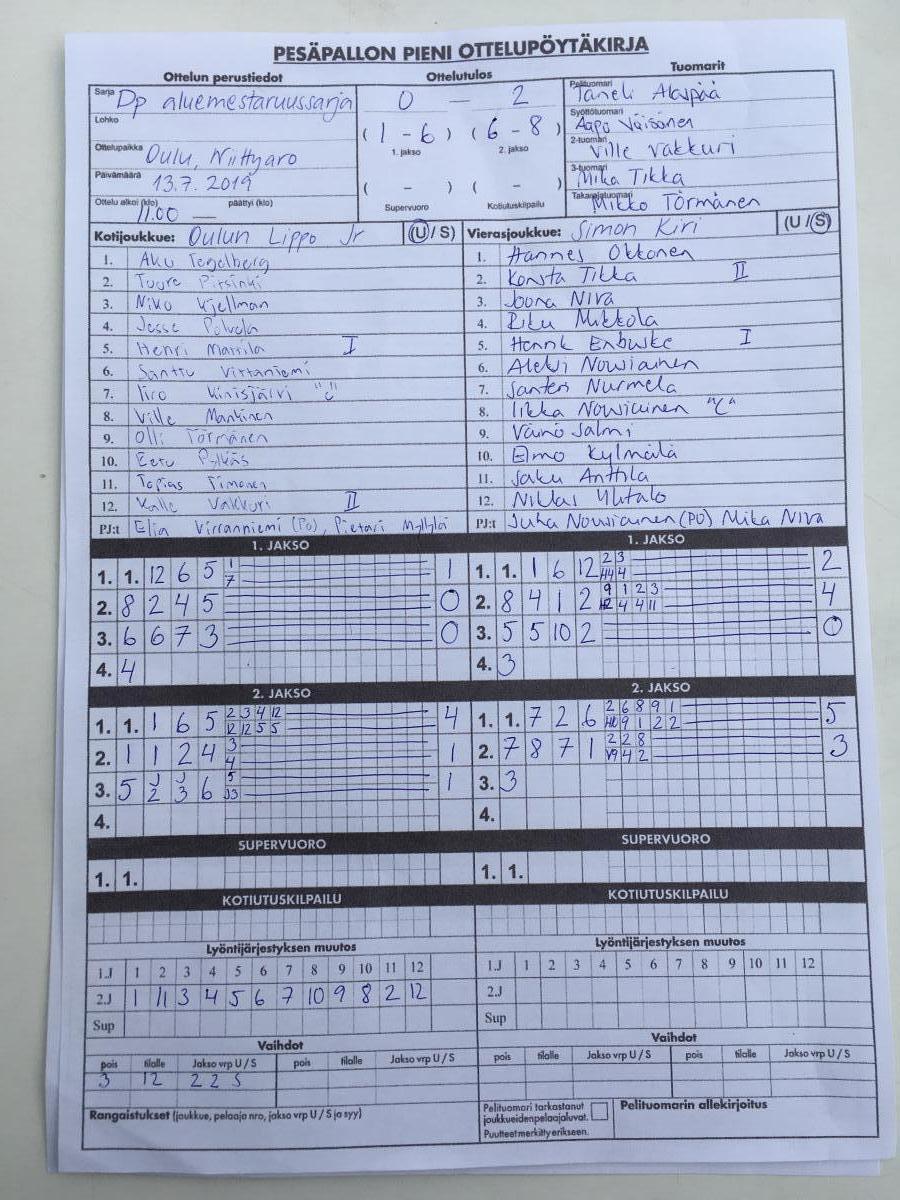 PESÄPALLON PIENI OTTELUPÖYTÄKIRJA
Ottelun perustiedot
Ottelutulos
Tuomarit
Sarja Dp aluemestaruussarja
Lohko
Ottelupaikka Oulu, Niittyaro
Päivämäärä 13.7.2019
Ottelu alkoi (klo) 11.00 — päättyi (klo)
0 — 2
( 1 - 6 ) ( 6 - 8 )
1. jakso 2. jakso
( - ) ( - )
Supervuoro Kotiutuskilpailu
Pelituomari Taneli Alaspää
Syöttötuomari Aapo Väisänen
2-tuomari Ville Vakkuri
3-tuomari Mika Tikka
Takarajatuomari Mikko Törmänen
Kotijoukkue: Oulun Lippo Jr (U / S)
1. Aku Tegelberg
2. Tuure
3. Niko Kjellman
4. Jesse
5. Henri Mattila I
6. Santtu Virtaniemi
7. Iiro Kinisjärvi "C"
8. Ville Manninen
9. Olli Törmänen
10. Eetu Pylkäs
11. Topias Timonen
12. Kalle Vakkuri II
PJ:t Elia Virranniemi (PO), Pietari Myllylä
Vierasjoukkue: Simon Kiri (U / S)
1. Hannes Okkonen
2. Konsta Tikka II
3. Joona Niva
4. Riku Mikkola
5. Henrik Enbuske I
6. Aleksi Nousiainen
7. Santeri Nurmela
8. Iikka Nousiainen "C"
9. Väinö Salmi
10. Elmo Kylmälä
11. Saku Anttila
12. Niklas Ylitalo
PJ:t Juha Nousiainen (PO) Mika Niva
1. JAKSO
1. 1. 12 6 5 1 1
7
2. 8 2 4 5 0
3. 6 6 7 3 0
4. 4
1. JAKSO
1. 1. 1 6 12 2 3 2
4
2. 8 4 1 2 9 1 2 3 4
12 4 4 11
3. 5 5 10 2 0
4. 3
2. JAKSO
1. 1. 1 6 5 2 3 4 12 4
12 12 5 5
2. 1 1 2 4 3 1
4
3. 5 2 3 6 5 1
4.
2. JAKSO
1. 1. 7 2 6 2 6 8 9 1 5
9 1 2 2
2. 7 8 7 1 2 2 8 3
4 2
3. 3
4.
SUPERVUORO
1. 1.
SUPERVUORO
1. 1.
KOTIUTUSKILPAILU
KOTIUTUSKILPAILU
Lyöntijärjestyksen muutos
1.J 1 2 3 4 5 6 7 8 9 10 11 12
2.J 1 11 3 4 5 6 7 10 9 8 2 12
Sup
Lyöntijärjestyksen muutos
1.J 1 2 3 4 5 6 7 8 9 10 11 12
2.J
Sup
Vaihdot
pois tilalle Jakso vrp U / S pois tilalle Jakso vrp U / S
3 12 2 2 S
Vaihdot
pois tilalle Jakso vrp U / S pois tilalle Jakso vrp U / S
Rangaistukset (joukkue, pelaaja nro, jakso vrp U / S ja syy)
Pelituomari tarkastanut
joukkueidenpelaajaluvat.
Puutteet merkitty erikseen.
Pelituomarin allekirjoitus